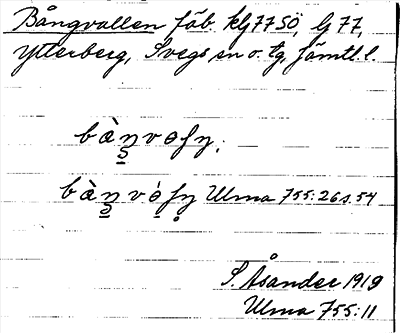 Bångvallen fäb. kly77SÖ, ly 77,
Ytterberg, Svegs sn o. tg, Jämtl. l.
Ulma 755:26 s. 54
S. Åsander 1919
Ulma 755:11